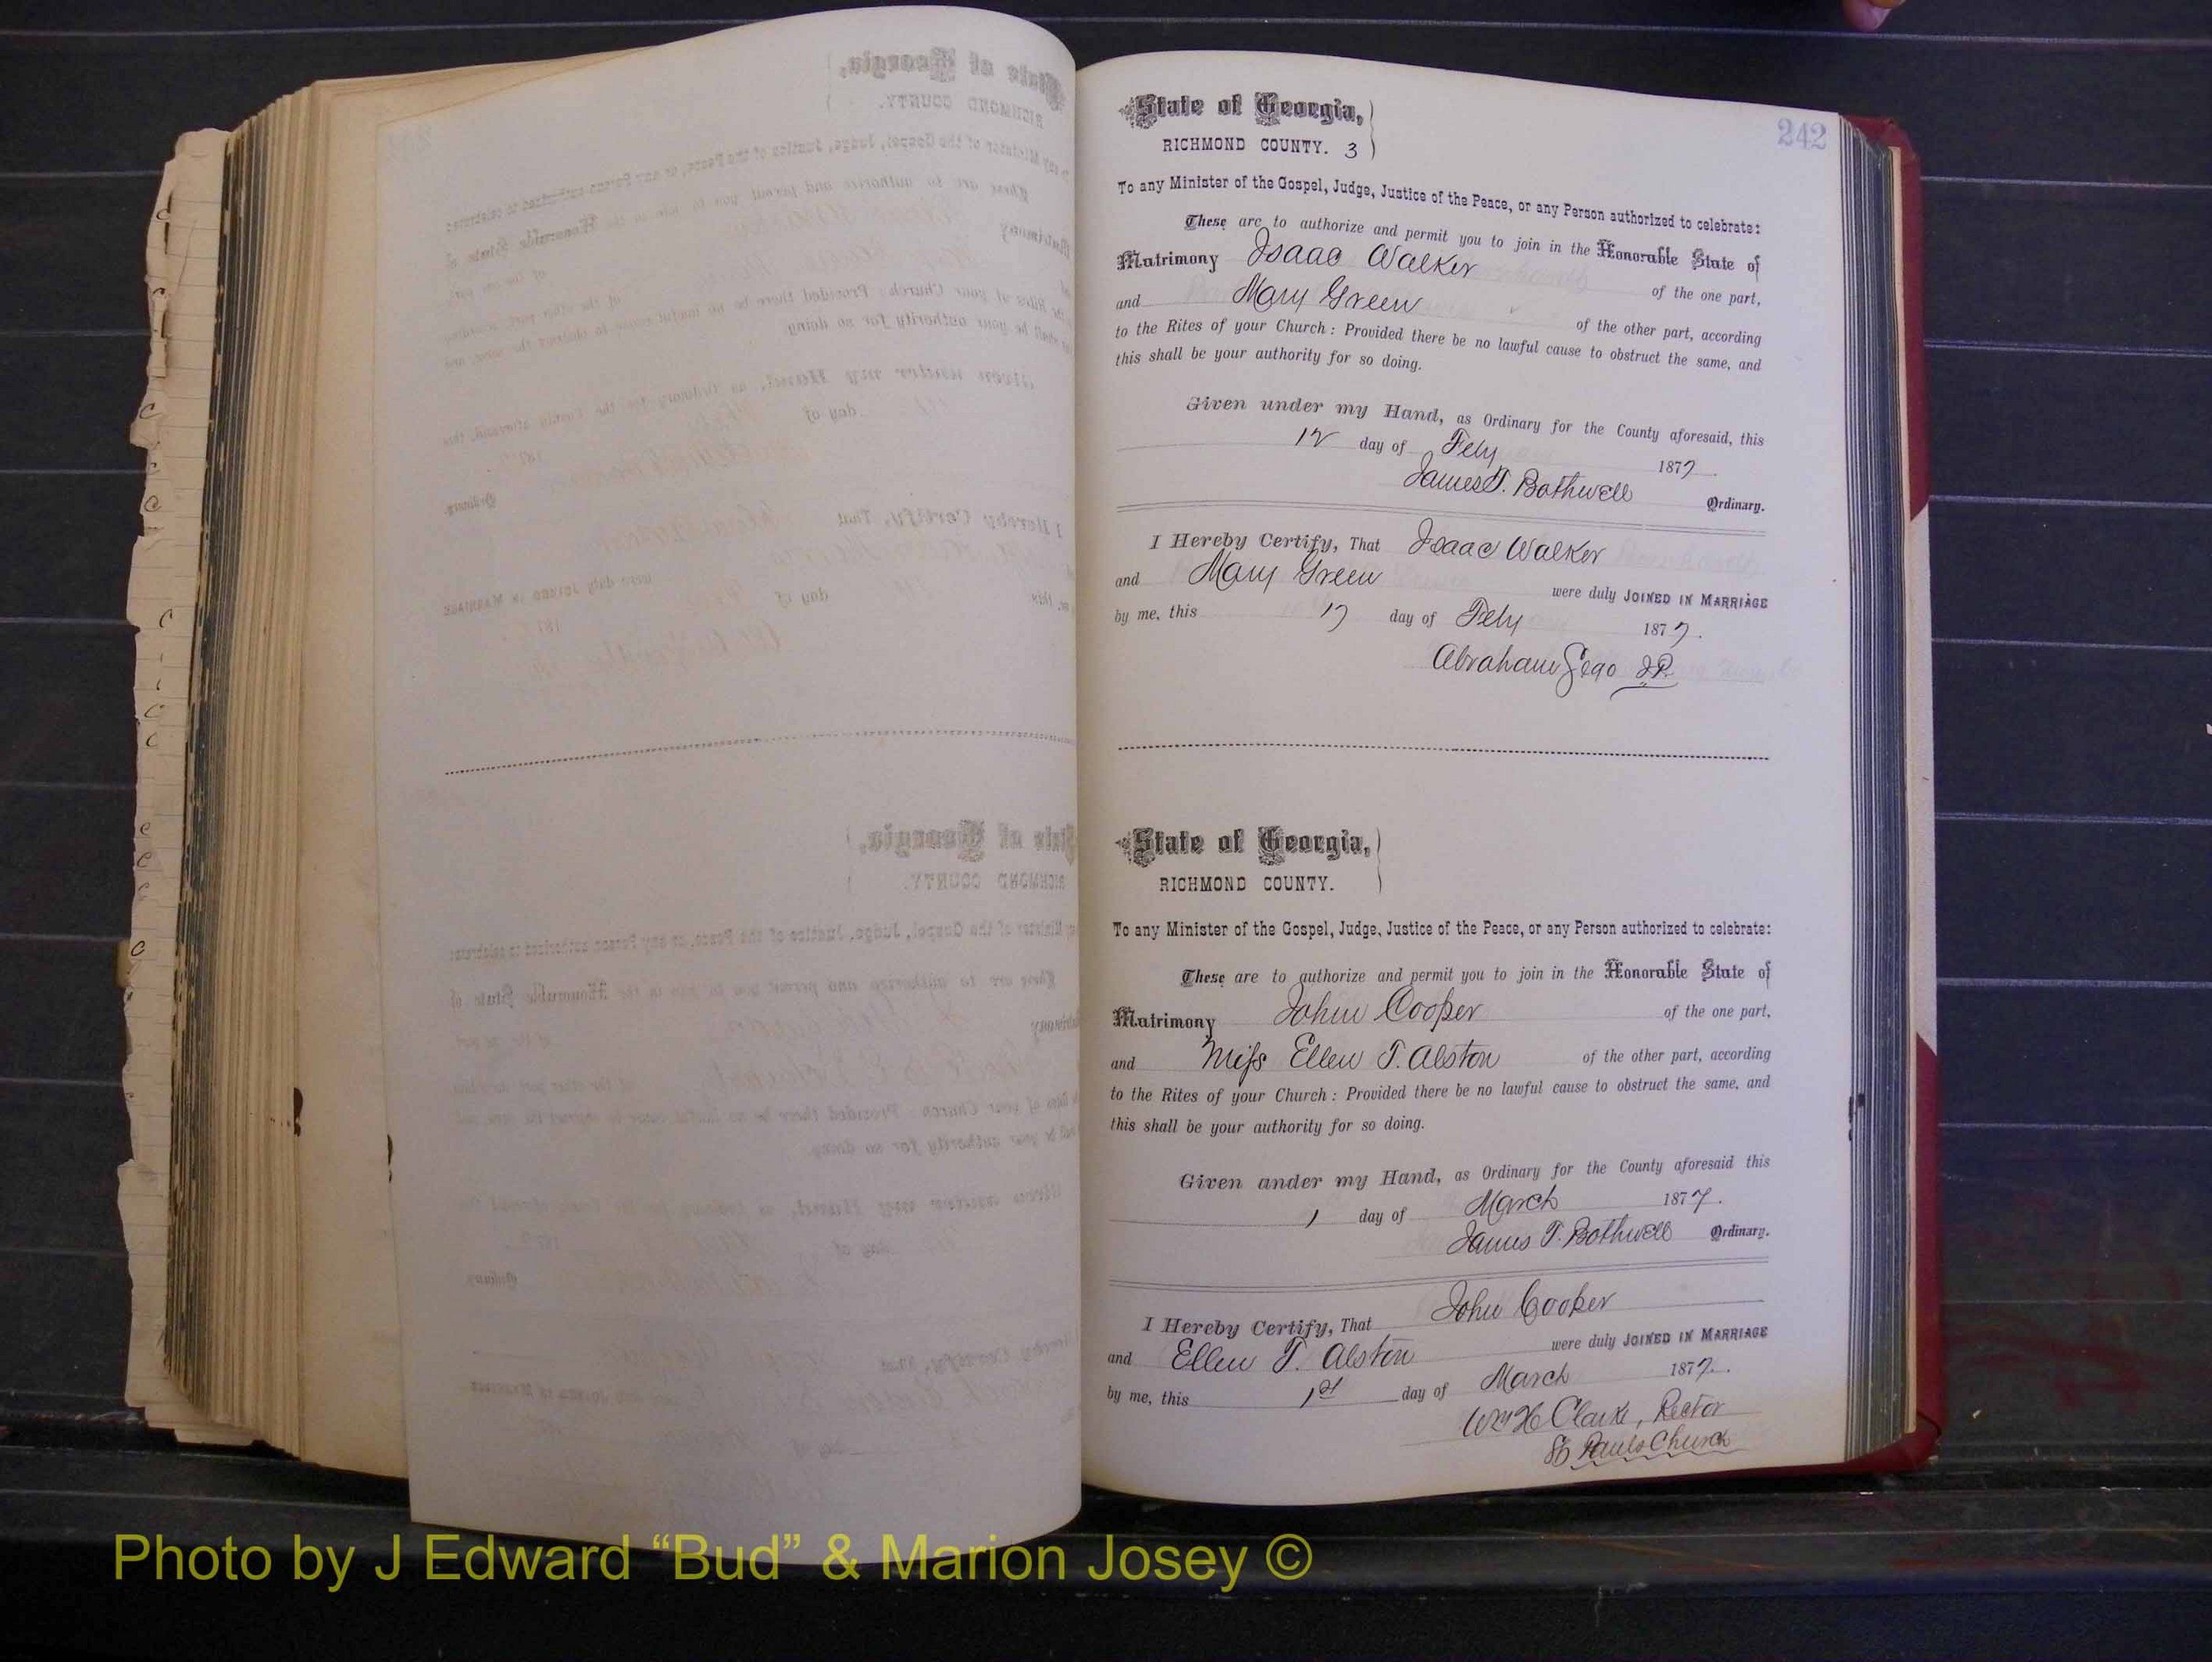 242
State of Georgia,
RICHMOND COUNTY. 3
To any Minister of the Gospel, Judge, Justice of the Peace, or any Person authorized to celebrate:
These are to authorize and permit you to join in the Honorable State of
Matrimony Isaac Walker of the one part,
and Mary Green of the other part, according
to the Rites of your Church: Provided there be no lawful cause to obstruct the same, and
this shall be your authority for so doing.
Given under my Hand, as Ordinary for the County aforesaid, this
12 day of Feby 1877
James T. Bothwell Ordinary.
I Hereby Certify, That Isaac Walker
and Mary Green were duly JOINED IN MARRIAGE
by me, this 17 day of Feby 1877.
Abraham Sego J.P.
State of Georgia,
RICHMOND COUNTY.
To any Minister of the Gospel, Judge, Justice of the Peace, or any Person authorized to celebrate:
These are to authorize and permit you to join in the Honorable State of
Matrimony John Cooper of the one part,
and Miss Ellen T. Alston of the other part, according
to the Rites of your Church: Provided there be no lawful cause to obstruct the same, and
this shall be your authority for so doing.
Given under my Hand, as Ordinary for the County aforesaid this
1 day of March 1877.
James T. Bothwell Ordinary.
I Hereby Certify, That John Cooper
and Ellen T. Alston were duly JOINED IN MARRIAGE
by me, this 1st day of March 1877.
Wm H Clarke, Rector
St Pauls Church
Photo by J Edward “Bud” & Marion Josey ©